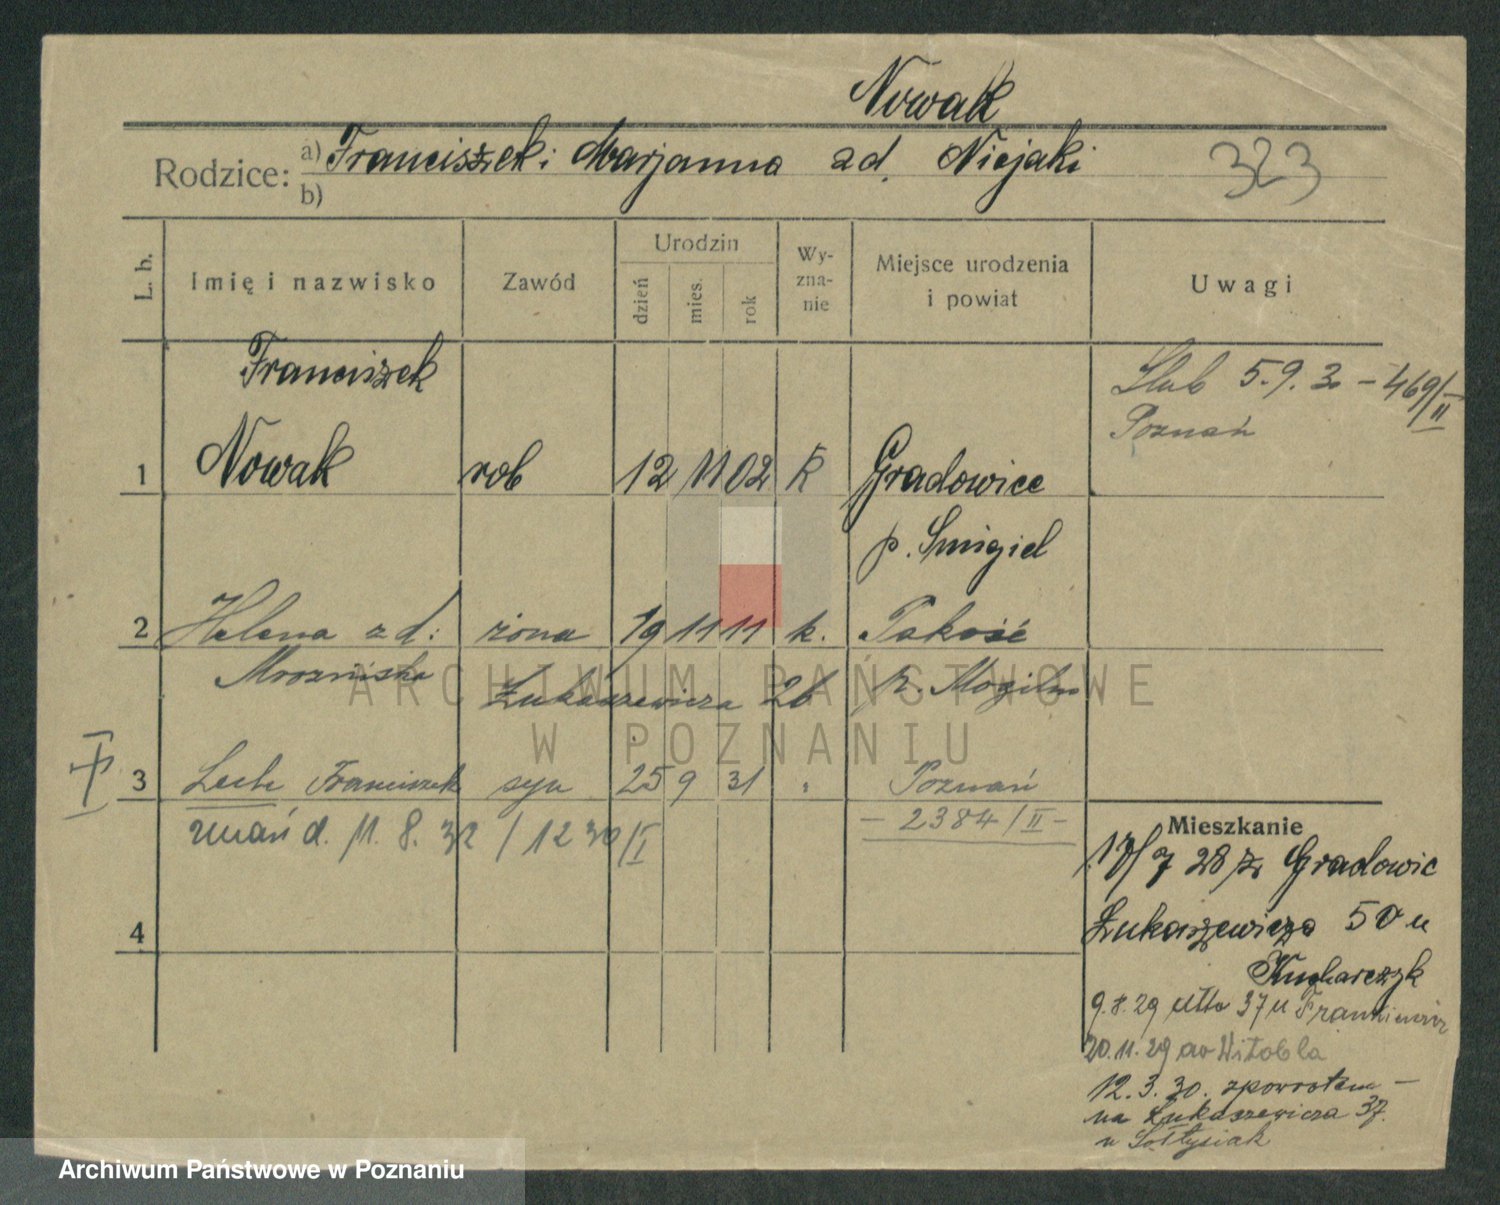 Nowak
Rodzice: a) Franciszek i Marjanna zd. Niejaki
b)
323
L. b.
Imię i nazwisko
Zawód
Urodzin
dzień
mies.
rok
Wy-
zna-
nie
Miejsce urodzenia
i powiat
Uwagi
Franciszek
Ślub 5.9.30 – 469/II
Poznań
1 Nowak rob 12 11 02 K Gradowice
p. Śmigiel
2 Helena zd: żona 19 11 11 k. Pakość
Mrozińska Łukaszewicza 26 p. Mogilno
3 Lech Franciszek syn 25 9 31 " Poznań
– 2384/II –
zmarł d. 11. 8. 32 / 1230/I
4
Mieszkanie
17/7 28 z Gradowic
Łukaszewicza 50 u
Kucharczyk
9.8.29 37 u
20.11.29 do Witobla
12.3.30. zpowrotem –
na Łukaszewicza 37.
u Sołtysiak
ARCHIWUM PAŃSTWOWE
W POZNANIU
Archiwum Państwowe w Poznaniu